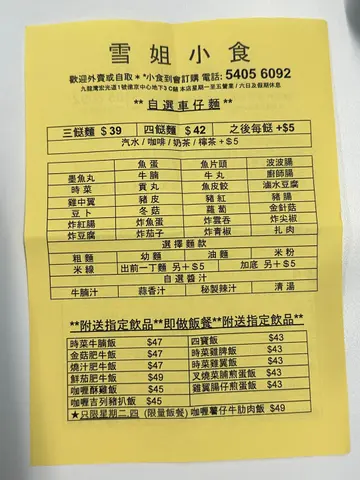 雪姐小食
歡迎外賣或自取 * *小食到會訂購 電話: 5405 6092
九龍灣宏光道1號億京中心地下3C舖 本店星期一至五營業 / 六日及假期休息
** 自選車仔麵 **
三餸麵 $39 四餸麵 $42 之後每餸 +$5
汽水 / 咖啡 / 奶茶 / 檸茶 + $5
魚蛋 魚片頭 波波腸
墨魚丸 牛腩 牛丸 廚師腸
時菜 貢丸 魚皮餃 滷水豆腐
雞中翼 豬皮 豬紅 豬腸
豆卜 冬菇 蘿蔔 金針菇
炸紅腸 炸魚蛋 炸雲吞 炸尖椒
炸豆腐 炸茄子 炸青椒 扎肉
選擇麵款
粗麵 幼麵 油麵 米粉
米線 出前一丁麵 另+$5 加底 另+$5
自選醬汁
牛腩汁 蒜香汁 秘製辣汁 清湯
**附送指定飲品**即做飯餐**附送指定飲品**
時菜牛腩飯 $47 四寶飯 $43
金菇肥牛飯 $47 時菜雞髀飯 $43
燒汁肥牛飯 $47 時菜雞翼飯 $43
鮮茄肥牛飯 $49 叉燒菜脯煎蛋飯 $43
咖喱酥雞飯 $45 雞翼腸仔煎蛋飯 $43
咖喱吉列豬扒飯 $45
★只限星期二,四 (限量飯餐) 咖喱薯仔牛肋肉飯 $49